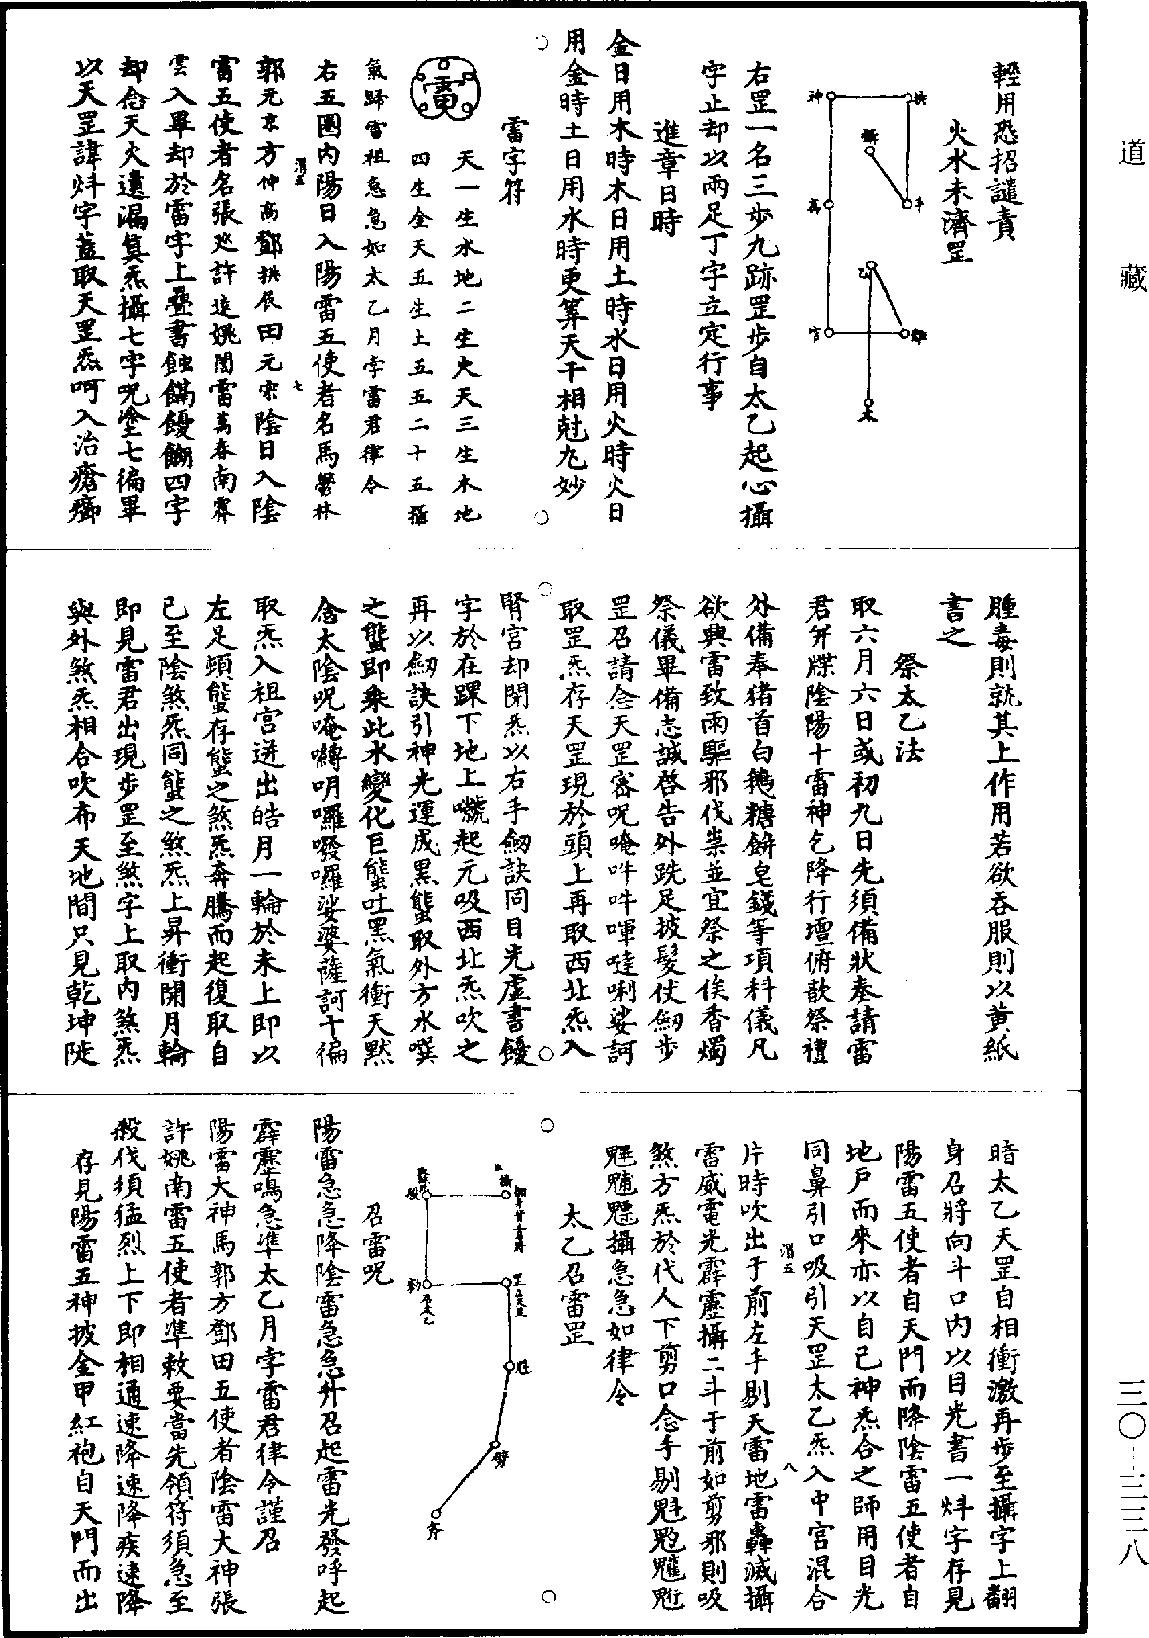 道藏
輕用恐招譴責
火水未濟罡
神
手
宮
未
右罡一名三步九跡罡步自太乙起心攝
字止却以兩足丁字立定行事
進章日時
金日用木時木日用土時水日用火時火日
用金時土日用水時更筭天干相尅尤妙
雷字符
天一生水地二生火天三生木地
四生金天五生土五五二十五攝
氣歸雷祖急急如太乙月孛雷君律令
右五圈内陽日入陽雷五使者名馬鬱林
郭元京方仲高鄧拱辰田元宗陰日入陰
雷五使者名張延許遠姚誾雷萬春南霽
雲入畢却於雷字上疊書蝕䭧饅餬四字
却念天火遺漏真炁攝七字呪塗七徧畢
以天罡諱炓字蓋取天罡炁呵入治瘡癤
渭五
七
腫毒則就其上作用若欲吞服則以黄紙
書之
祭太乙法
取六月六日或初九日先須備狀奏請雷
君并牒陰陽十雷神乞降行壇俯歆祭禮
外備奉猪首白鵝糖餅皂錢等項科儀凡
欲興雷致雨驅邪伐祟並宜祭之俟香燭
祭儀畢備志誠啓告外跣足披髮仗劒步
罡召請念天罡密呪唵吽吽㖶噠唎娑訶
取罡炁存天罡現於頭上再取西北炁入
腎宮却閉炁以右手劒訣同目光虛書
字於在踝下地上 起元吸西北炁吹之
再以劒訣引神光運成黑 取外方水噀
之 即乘此水變化巨 吐黑氣衝天黙
念太陰呪唵囀明囉囉娑婆薩訶十徧
取炁入祖宮迸出皓月一輪於未上即以
左足頓 存 之煞炁奔騰而起復取自
己至陰煞炁同 之煞炁上昇衝開月輪
即見雷君出現步罡至煞字上取内煞炁
與外煞炁相合吹布天地間只見乾坤陡
暗太乙天罡自相衝激再步至攝字上翻
身召將向斗口内以目光書一炓字存見
陽雷五使者自天門而降陰雷五使者自
地戶而來亦以自己神炁合之師用目光
同鼻引口吸引天罡太乙炁入中宮混合
片時吹出于前左手剔天雷地雷轟滅攝
雷威電光霹靂攝二斗于前如剪邪則吸
煞方炁於代人下剪口念手剔魁
攝急急如律令
渭五
八
太乙召雷罡
召雷呪
陽雷急急降陰雷急急升召起雷光發呼起
霹靂鳴急準太乙月孛雷君律令謹召
陽雷大神馬郭方鄧田五使者陰雷大神張
許姚南雷五使者準敕要當先領符須急至
殺伐須猛烈上下即相通速降速降疾速降
存見陽雷五神披金甲紅袍自天門而出
三〇—三三八